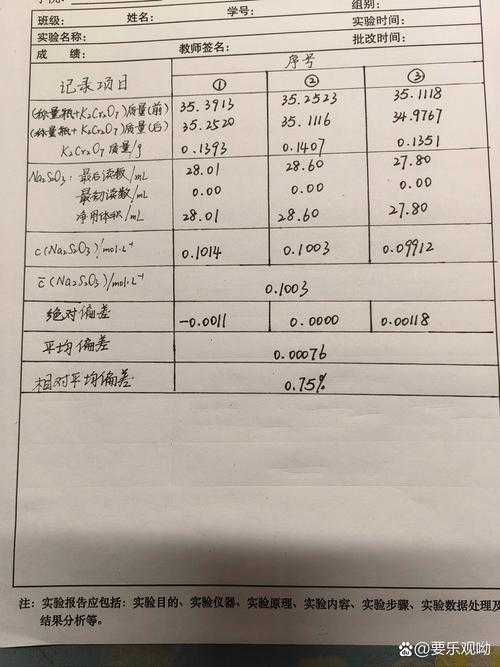 班级: 姓名: 学号: 组别:
实验名称: 实验时间:
成 绩: 教师签名: 批改时间:
记录项目 序号
① ② ③
(称量瓶+K₂Cr₂O₇)质量(前) 35.3913 35.2523 35.1118
(称量瓶+K₂Cr₂O₇)质量(后) 35.2520 35.1116 34.9767
K₂Cr₂O₇质量/g 0.1393 0.1407 0.1351
Na₂S₂O₃: 最后读数/mL 28.01 28.60 27.80
最初读数/mL 0.00 0.00 0.00
净用体积/mL 28.01 28.60 27.80
c(Na₂S₂O₃)/mol·L⁻¹ 0.1014 0.1003 0.09912
c̅(Na₂S₂O₃)/mol·L⁻¹ 0.1003
绝对偏差 -0.0011 0.0000 0.00118
平均偏差 0.00076
相对平均偏差 0.75%
注: 实验报告应包括: 实验目的、实验仪器、实验原理、实验内容、实验步骤、实验数据处理及
结果分析等。
@要乐观呦